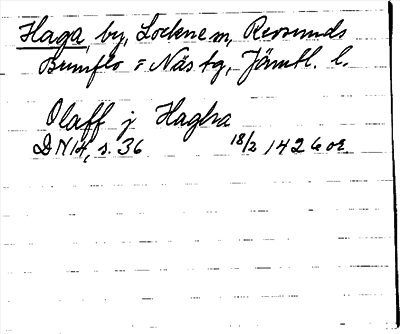 Haga, by, Lockne sn, Revsunds
Brunflo o Näs tg, Jämtl. l.
Olaff j Hagha
DN 14, s. 36 18/2 1426 or.